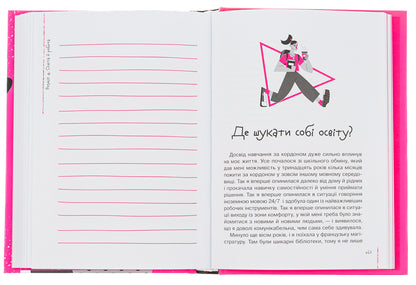 Розділ 4. Освіта й робота
Де шукати собі освіту?
Досвід навчання за кордоном дуже сильно вплинув
на моє життя. Усе почалося зі шкільного обміну, який
дав мені можливість у тринадцять років кілька місяців
пожити за кордоном у зовсім іншому мовному середо-
вищі. Так я вперше опинилася далеко від дому й рідних
і прокачала навичку самостійності й уміння приймати
рішення. Так я вперше опинилася в ситуації говоріння
іноземною мовою 24/7 і здобула один із найважливіших
робочих інструментів. Так я вперше опинилася в ситуа-
ції виходу із зони комфорту, у якій мені треба було зна-
йомитися з новими й новими людьми, — і виявилося,
що я доволі комунікабельна, чим сама себе здивувала.
Минуло ще вісім років, і я поїхала у французьку магі-
стратуру. Там були шикарні бібліотеки, тому я не лише